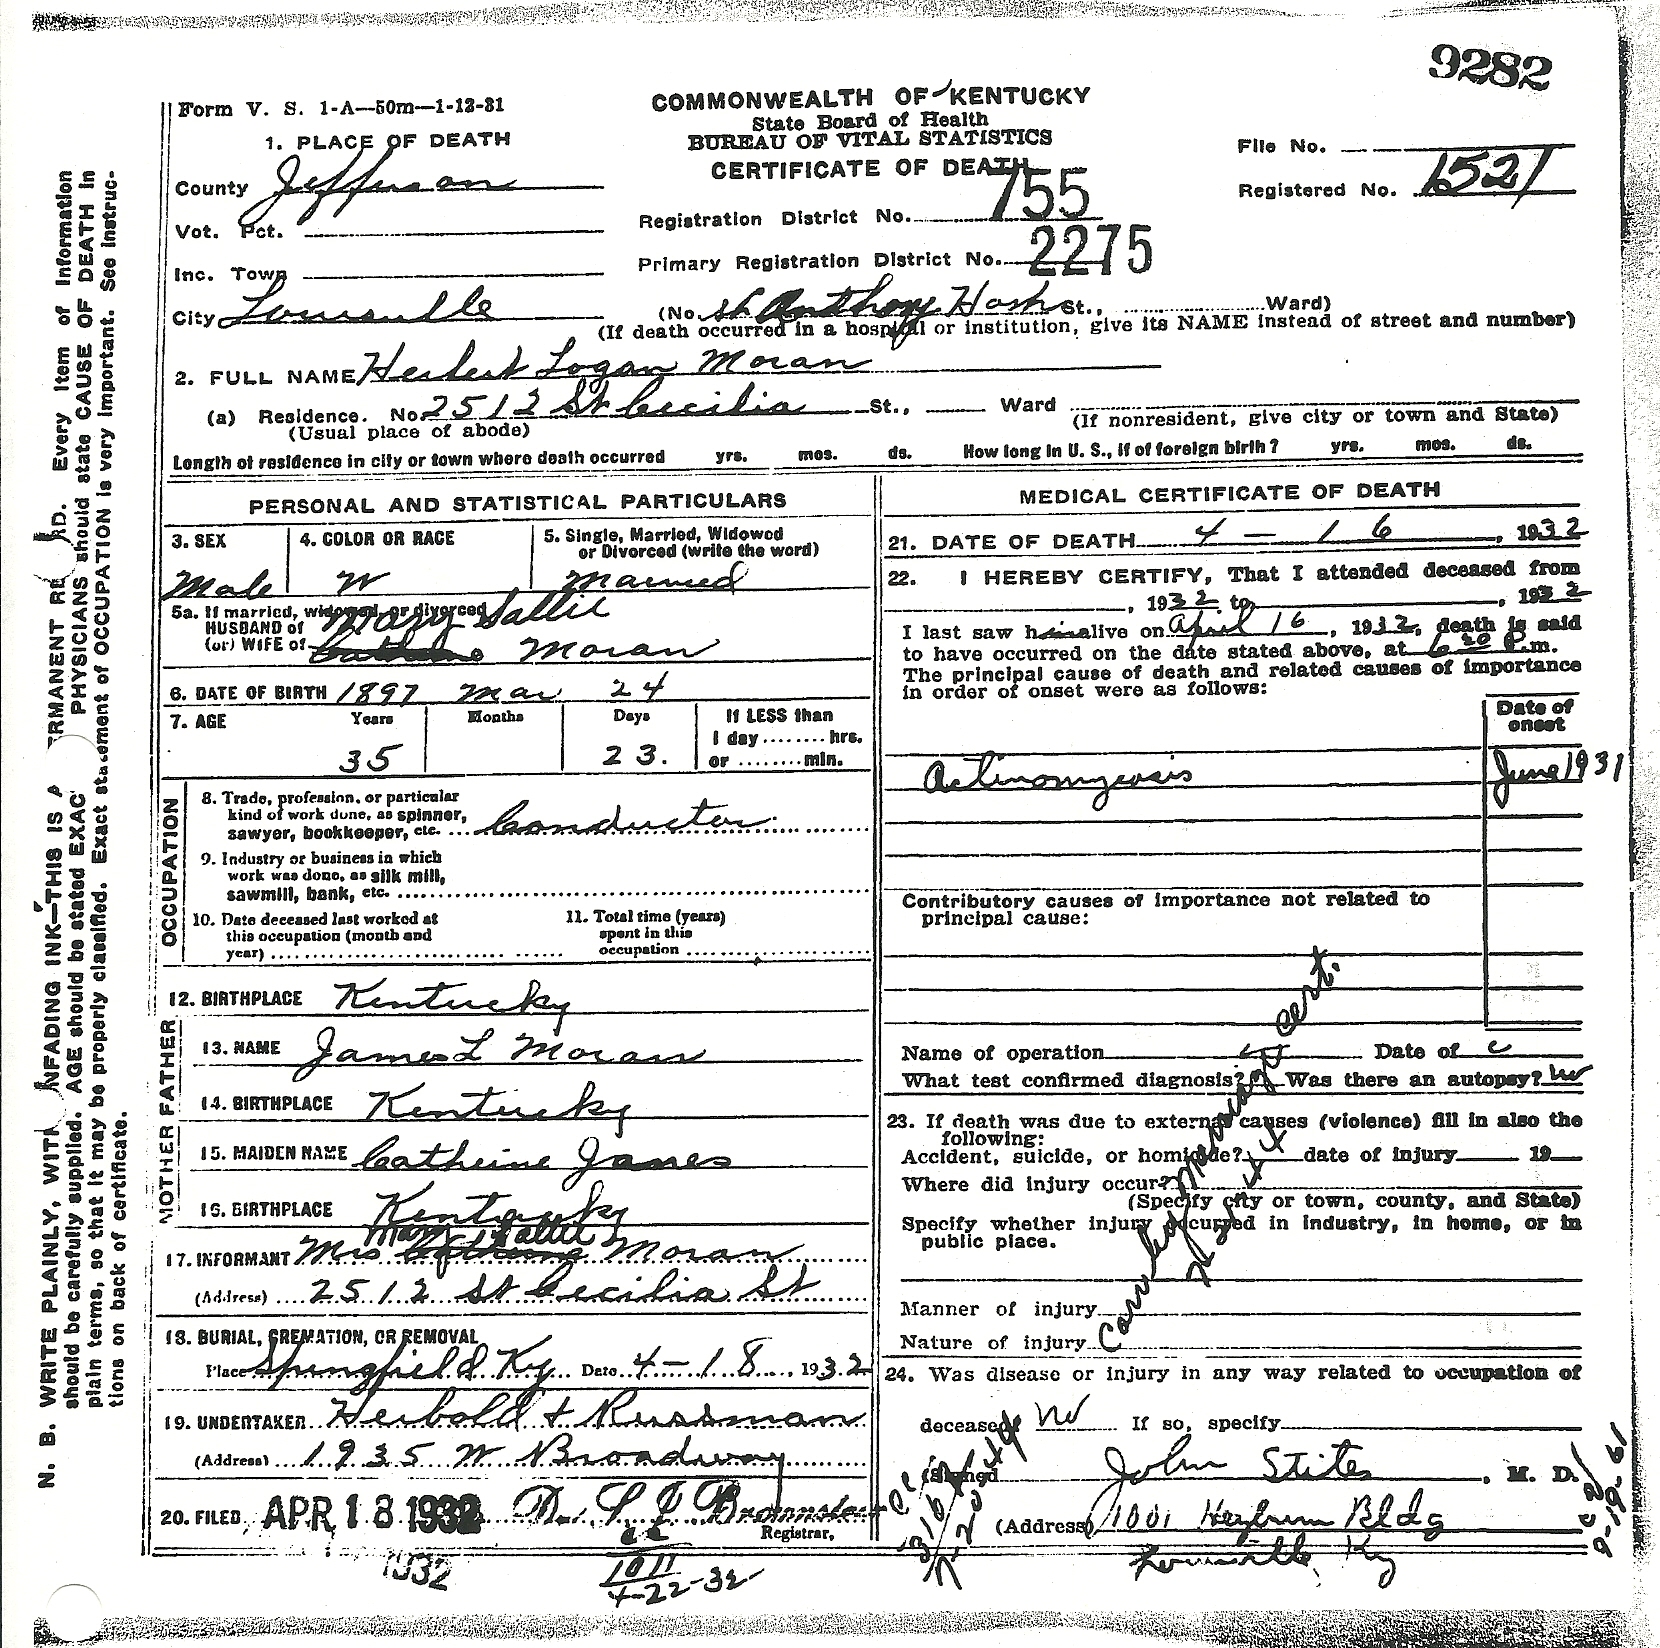 9282
Form V. S. 1-A—50m—1-12-31
COMMONWEALTH OF KENTUCKY
State Board of Health
BUREAU OF VITAL STATISTICS
CERTIFICATE OF DEATH
1. PLACE OF DEATH
County Jefferson
Vot. Pct.
Inc. Town
City Louisville
File No.
Registered No. 1521
Registration District No. 755
Primary Registration District No. 2275
(No. St Anthony Hosp St., Ward)
(If death occurred in a hospital or institution, give its NAME instead of street and number)
2. FULL NAME Herbert Logan Moran
(a) Residence. No. 2512 St Cecilia St., Ward
(Usual place of abode)
(If nonresident, give city or town and State)
Length of residence in city or town where death occurred yrs. mos. ds. How long in U. S., if of foreign birth? yrs. mos. ds.
PERSONAL AND STATISTICAL PARTICULARS
3. SEX
Male
4. COLOR OR RACE
W
5. Single, Married, Widowed
or Divorced (write the word)
Married
5a. If married, widowed, or divorced
HUSBAND of Mary Sallie
(or) WIFE of Catherine Moran
6. DATE OF BIRTH 1897 Mar 24
7. AGE Years Months Days If LESS than
1 day ........ hrs.
or ........ min.
35 23.
OCCUPATION
8. Trade, profession, or particular
kind of work done, as spinner,
sawyer, bookkeeper, etc. Conductor
9. Industry or business in which
work was done, as silk mill,
sawmill, bank, etc.
10. Date deceased last worked at
this occupation (month and
year)
11. Total time (years)
spent in this
occupation
12. BIRTHPLACE Kentucky
FATHER
13. NAME James L Moran
14. BIRTHPLACE Kentucky
MOTHER
15. MAIDEN NAME Catherine Janes
16. BIRTHPLACE Kentucky
Mary Sallie
17. INFORMANT Mrs Catherine Moran
(Address) 2512 St Cecilia St
18. BURIAL, CREMATION, OR REMOVAL
Place Springfield Ky Date 4-18, 1932
19. UNDERTAKER Heibold & Russman
(Address) 1935 W Broadway
20. FILED, APR 18 1932
Registrar,
1932
1011
4-22-32
MEDICAL CERTIFICATE OF DEATH
21. DATE OF DEATH 4 - 16, 1932
22. I HEREBY CERTIFY, That I attended deceased from
, 1932 to , 1932
I last saw him alive on April 16, 1932, death is said
to have occurred on the date stated above, at 6 30 P.m.
The principal cause of death and related causes of importance
in order of onset were as follows:
Date of
onset
Actinomycosis June 1931
Contributory causes of importance not related to
principal cause:
Name of operation Date of
What test confirmed diagnosis? Was there an autopsy? No
23. If death was due to external causes (violence) fill in also the
following:
Accident, suicide, or homicide? date of injury 19
Where did injury occur?
(Specify city or town, county, and State)
Specify whether injury occurred in industry, in home, or in
public place.
Manner of injury
Nature of injury
24. Was disease or injury in any way related to occupation of
deceased? No If so, specify
(Signed John Stites, M. D.
(Address) 1001 Heyburn Bldg
Louisville, Ky
by marriage cert.
N. B. WRITE PLAINLY, WITH UNFADING INK—THIS IS A PERMANENT RECORD. Every item of information
should be carefully supplied. AGE should be stated EXACTLY. PHYSICIANS should state CAUSE OF DEATH in
plain terms, so that it may be properly classified. Exact statement of OCCUPATION is very important. See instruc-
tions on back of certificate.